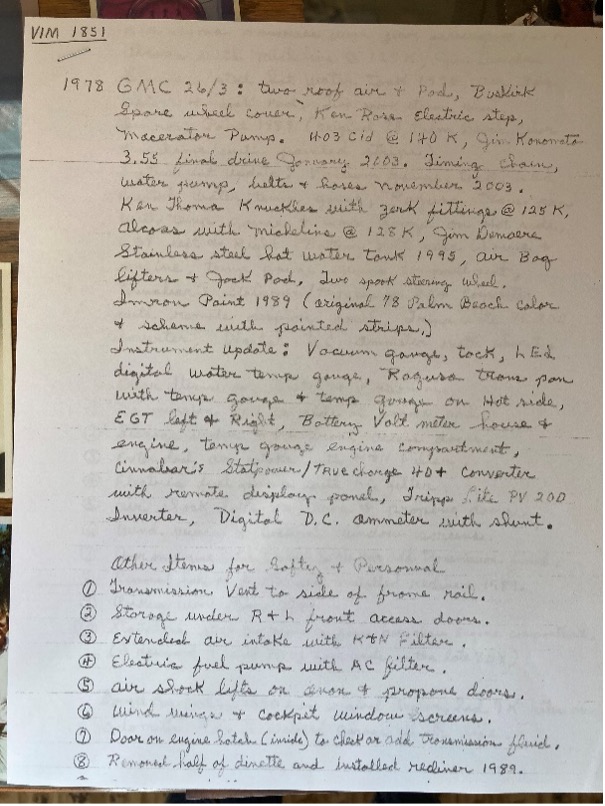 VIM 1851
1978 GMC 26/3: two roof air + Pod, Buskirk
Spare wheel cover, Ken Ross Electric step,
Macerator Pump. 403 Cid @ 140 K, Jim Konomoto
3.55 final drive January 2003. Timing Chain,
water pump, belts + hoses November 2003.
Ken Thoma Knuckles with zerk fittings @ 125 K,
alcoas with Michelins @ 128 K, Jim
Stainless steel hot water tank 1995, air Bag
lifters + Jack Pad, Two spook steering wheel.
Imron Paint 1989 (original 78 Palm Beach color
+ scheme with painted strips.)
Instrument update: Vacuum gauge, tack, LED
digital water temp gauge, Ragusa trans pan
with temp gauge + temp gauge on Hot side,
EGT left + Right, Battery Volt meter house +
engine, temp gauge engine compartment,
Cinnabar's Statpower/TRUE charge 40+ Converter
with remote display panel, Tripp Lite PV 200
Inverter, Digital D.C. ammeter with shunt.
Other Items for Safty + Personnal
① Transmission Vent to side of frame rail.
② Storage under R + L front access doors.
③ Extended air intake with K+N Filter.
④ Electric fuel pump with AC filter.
⑤ air shock lifts on onon + propane doors.
⑥ wind wings + cockpit window screens.
⑦ Door on engine hatch (inside) to check or add transmission fluid.
⑧ Removed half of dinette and installed recliner 1989.